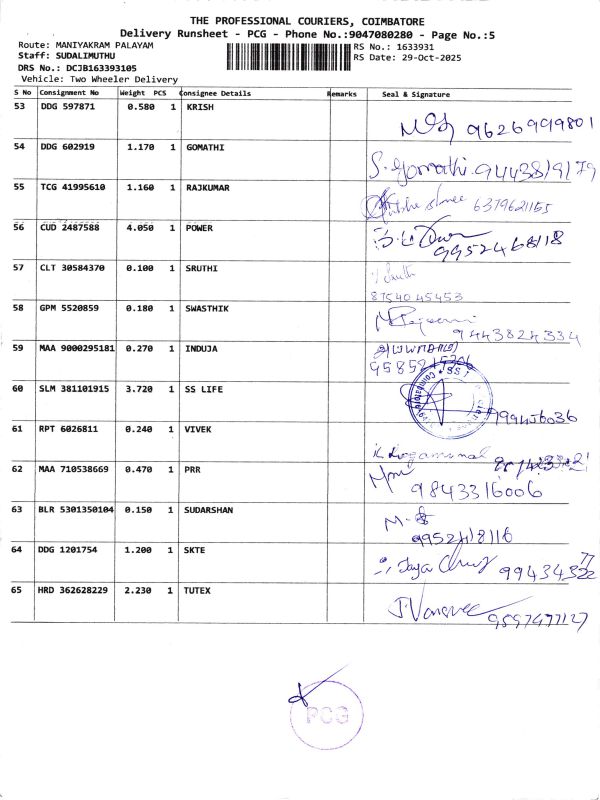 THE PROFESSIONAL COURIERS, COIMBATORE
Delivery Runsheet - PCG - Phone No.:9047080280 - Page No.:5
Route: MANIYAKRAM PALAYAM
RS No.: 1633931
Staff: SUDALIMUTHU
RS Date: 29-Oct-2025
DRS No.: DCJB163393105
Vehicle: Two Wheeler Delivery
S No Consignment No Weight PCS Consignee Details Remarks Seal & Signature
53 DDG 597871 0.580 1 KRISH
9626999801
54 DDG 602919 1.170 1 GOMATHI
S. Gomathi 9443819179
55 TCG 41995610 1.160 1 RAJKUMAR
6379621155
56 CUD 2487588 4.050 1 POWER
9952468118
57 CLT 30584370 0.100 1 SRUTHI
8754045453
58 GPM 5520859 0.180 1 SWASTHIK
9443824334
59 MAA 9000295181 0.270 1 INDUJA
60 SLM 381101915 3.720 1 SS LIFE
61 RPT 6026811 0.240 1 VIVEK
62 MAA 710538669 0.470 1 PRR
9843316006
63 BLR 5301350104 0.150 1 SUDARSHAN
9952418116
64 DDG 1201754 1.200 1 SKTE
65 HRD 362628229 2.230 1 TUTEX
9597477127
PCG